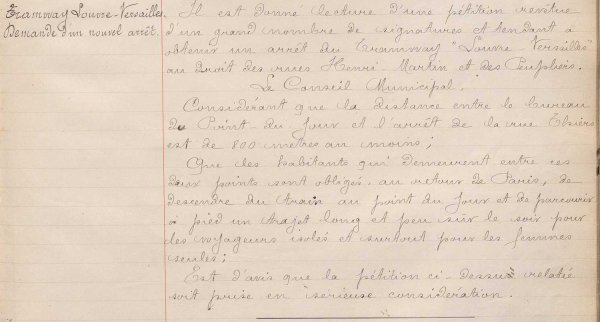 Tramway Louvre-Versailles
Demande d'un nouvel arrêt.
Il est donné lecture d'une pétition revêtue
d'un grand nombre de signatures et tendant à
obtenir un arrêt du Tramway "Louvre-Versailles"
au droit des rues Henri-Martin et des Peupliers.
Le Conseil Municipal.
Considérant que la distance entre le bureau
du Point-du-Jour et l'arrêt de la rue Thiers
est de 800 mètres au moins;
Que des habitants qui demeurent entre ces
deux points sont obligés, au retour de Paris, de
descendre du train au point du jour et de parcourir
à pied un trajet long et peu sûr le soir pour
des voyageurs isolés et surtout pour les femmes
seules;
Est d'avis que la pétition ci-dessus relatée
soit prise en sérieuse considération.